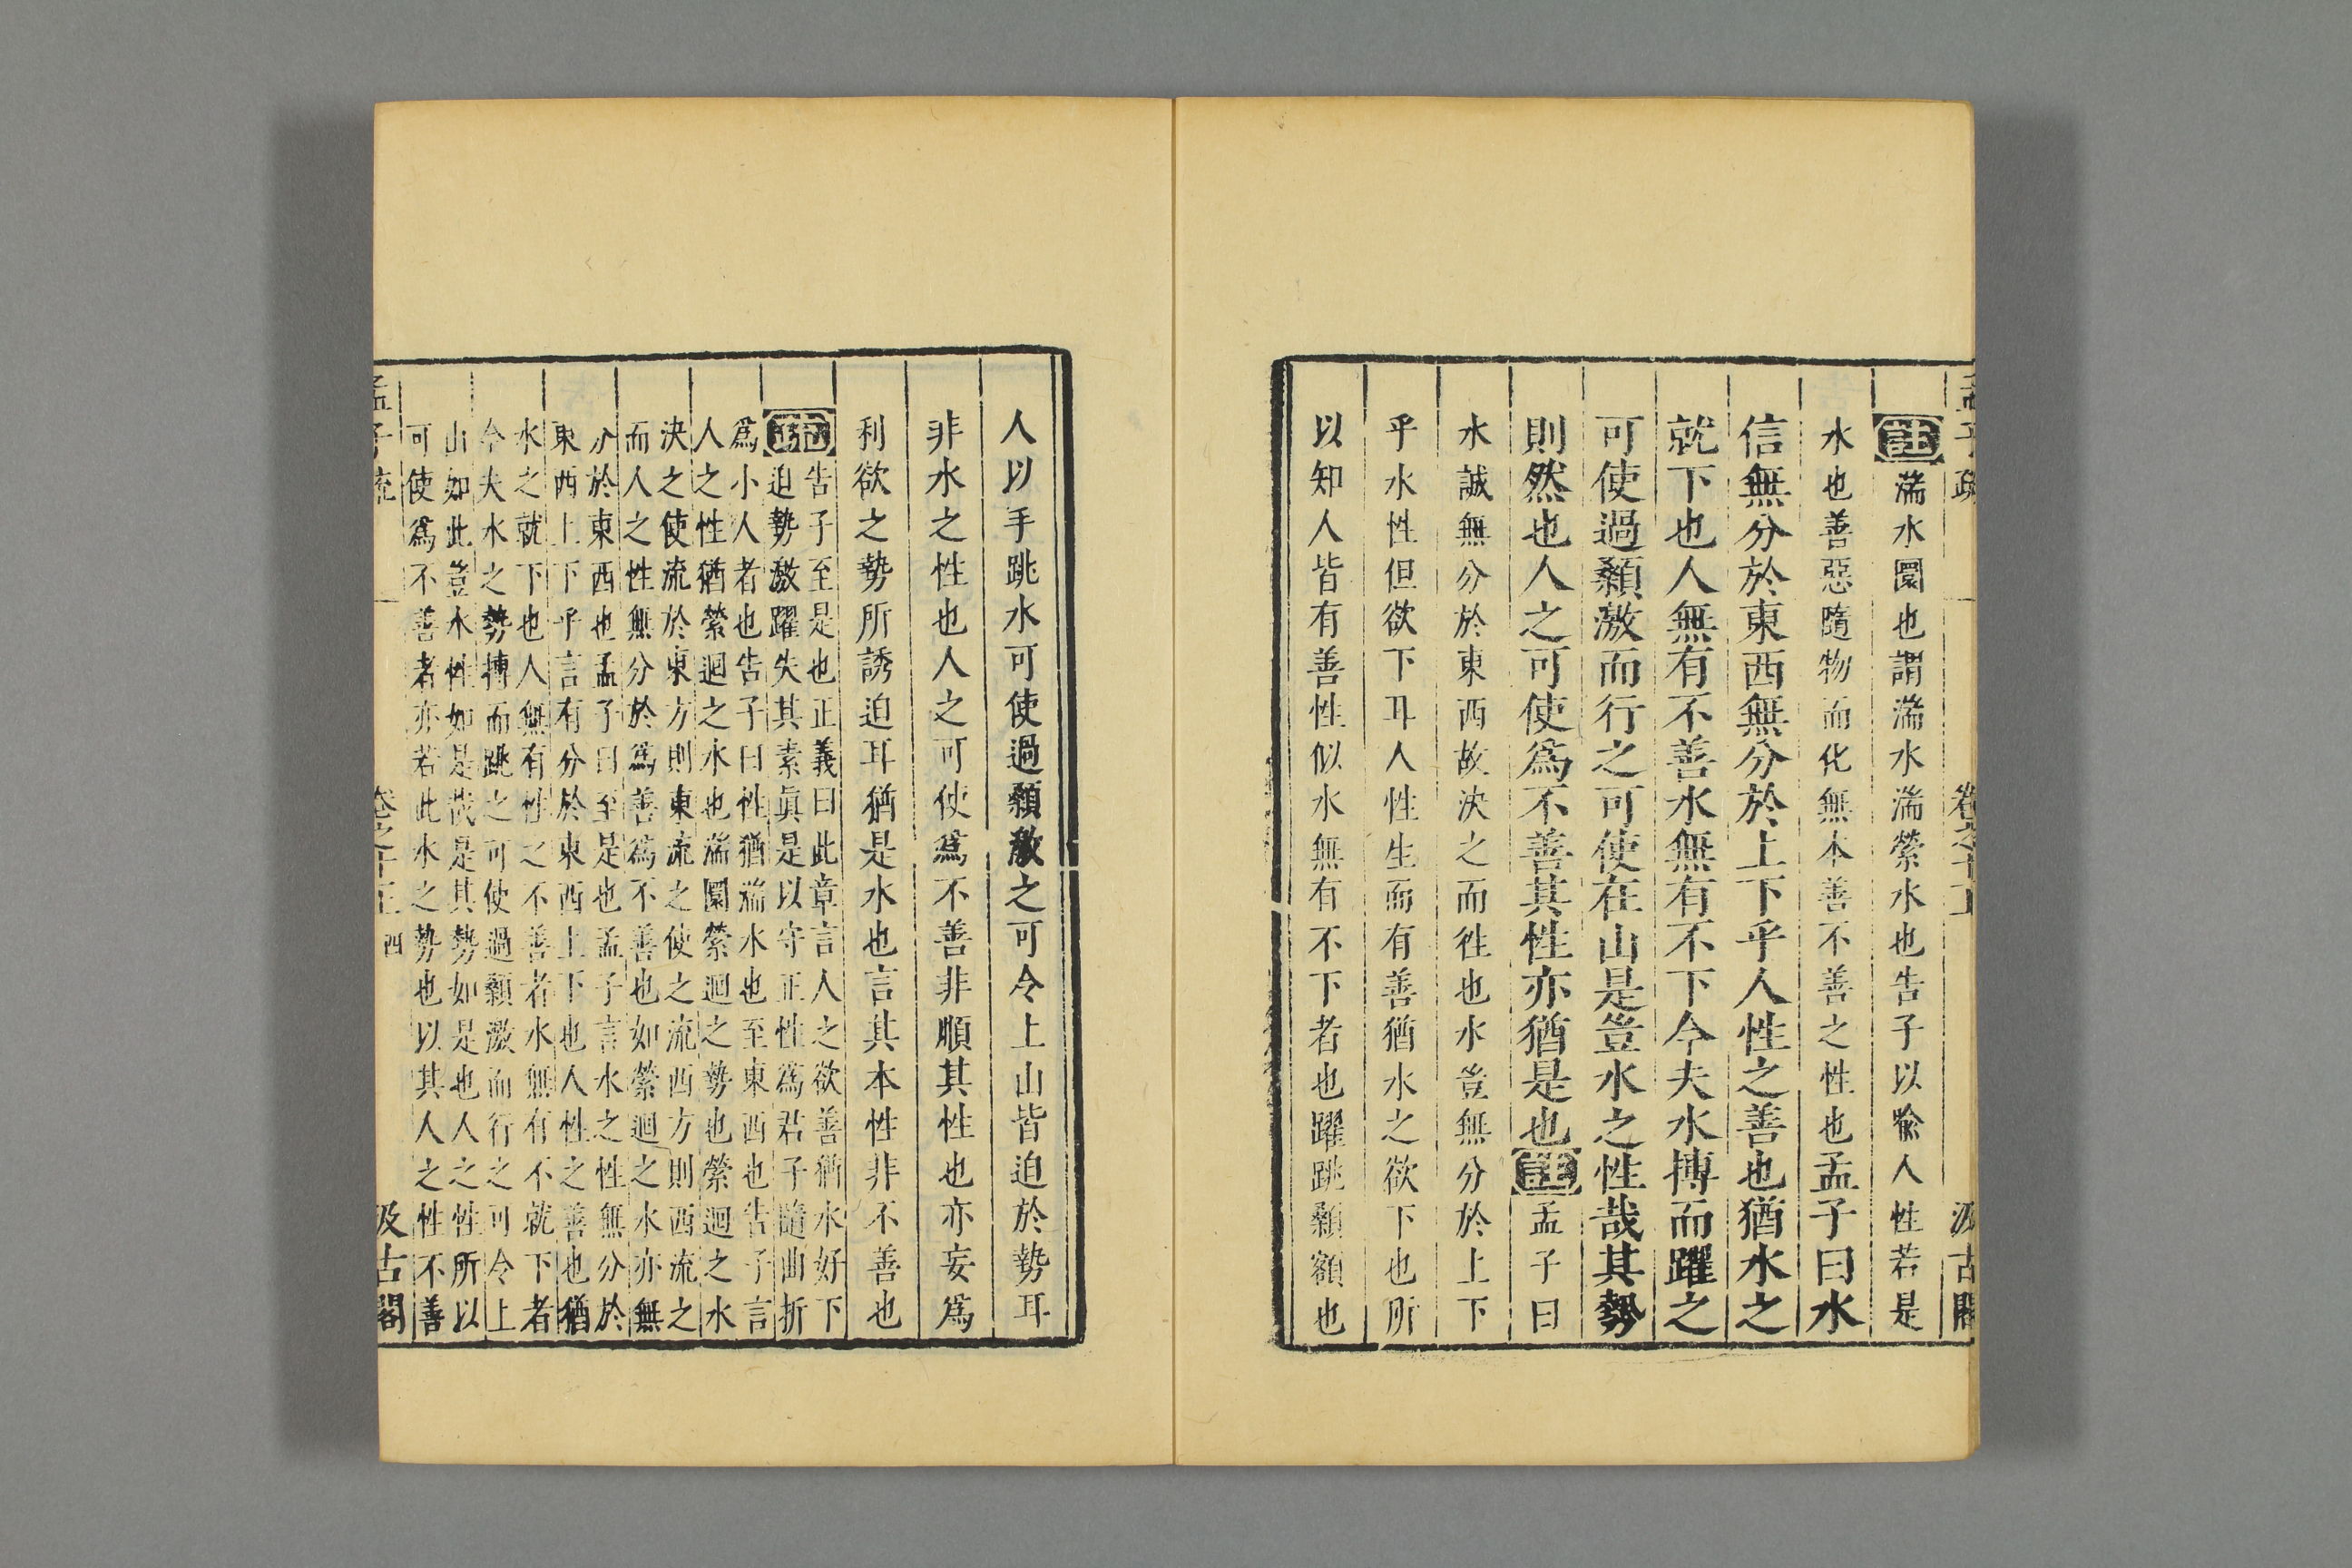 孟子疏 卷之十一 汲古閣
註湍水圜也謂湍水湍縈水也告子以喩人性若是
水也善惡隨物而化無本善不善之性也孟子曰水
信無分於東西無分於上下乎人性之善也猶水之
就下也人無有不善水無有不下今夫水搏而躍之
可使過顙激而行之可使在山是豈水之性哉其勢
則然也人之可使爲不善其性亦猶是也註孟子曰
水誠無分於東西故決之而往也水豈無分於上下
乎水性但欲下耳人性生而有善猶水之欲下也所
以知人皆有善性似水無有不下者也躍跳顙額也
人以手跳水可使過顙激之可令上山皆迫於勢耳
非水之性也人之可使爲不善非順其性也亦妄爲
利欲之勢所誘迫耳猶是水也言其本性非不善也
疏告子至是也正義曰此章言人之欲善猶水好下
迫勢激躍失其素眞是以守正性爲君子隨曲折
爲小人者也告子曰性猶湍水也至東西也告子言
人之性猶縈迴之水也湍圜縈迴之勢也縈迴之水
決之使流於東方則東流之使之流西方則西流之
而人之性無分於爲善爲不善也如縈迴之水亦無
分於東西也孟子曰至是也孟子言水之性無分於
東西上下乎言有分於東西上下也人性之善也猶
水之就下也人無有性之不善者水無有不就下者
今夫水之勢搏而跳之可使過顙激而行之可令上
山如此豈水性如是哉是其勢如是也人之性所以
可使爲不善者亦若此水之勢也以其人之性不善
孟子疏 卷之十一 四 汲古閣